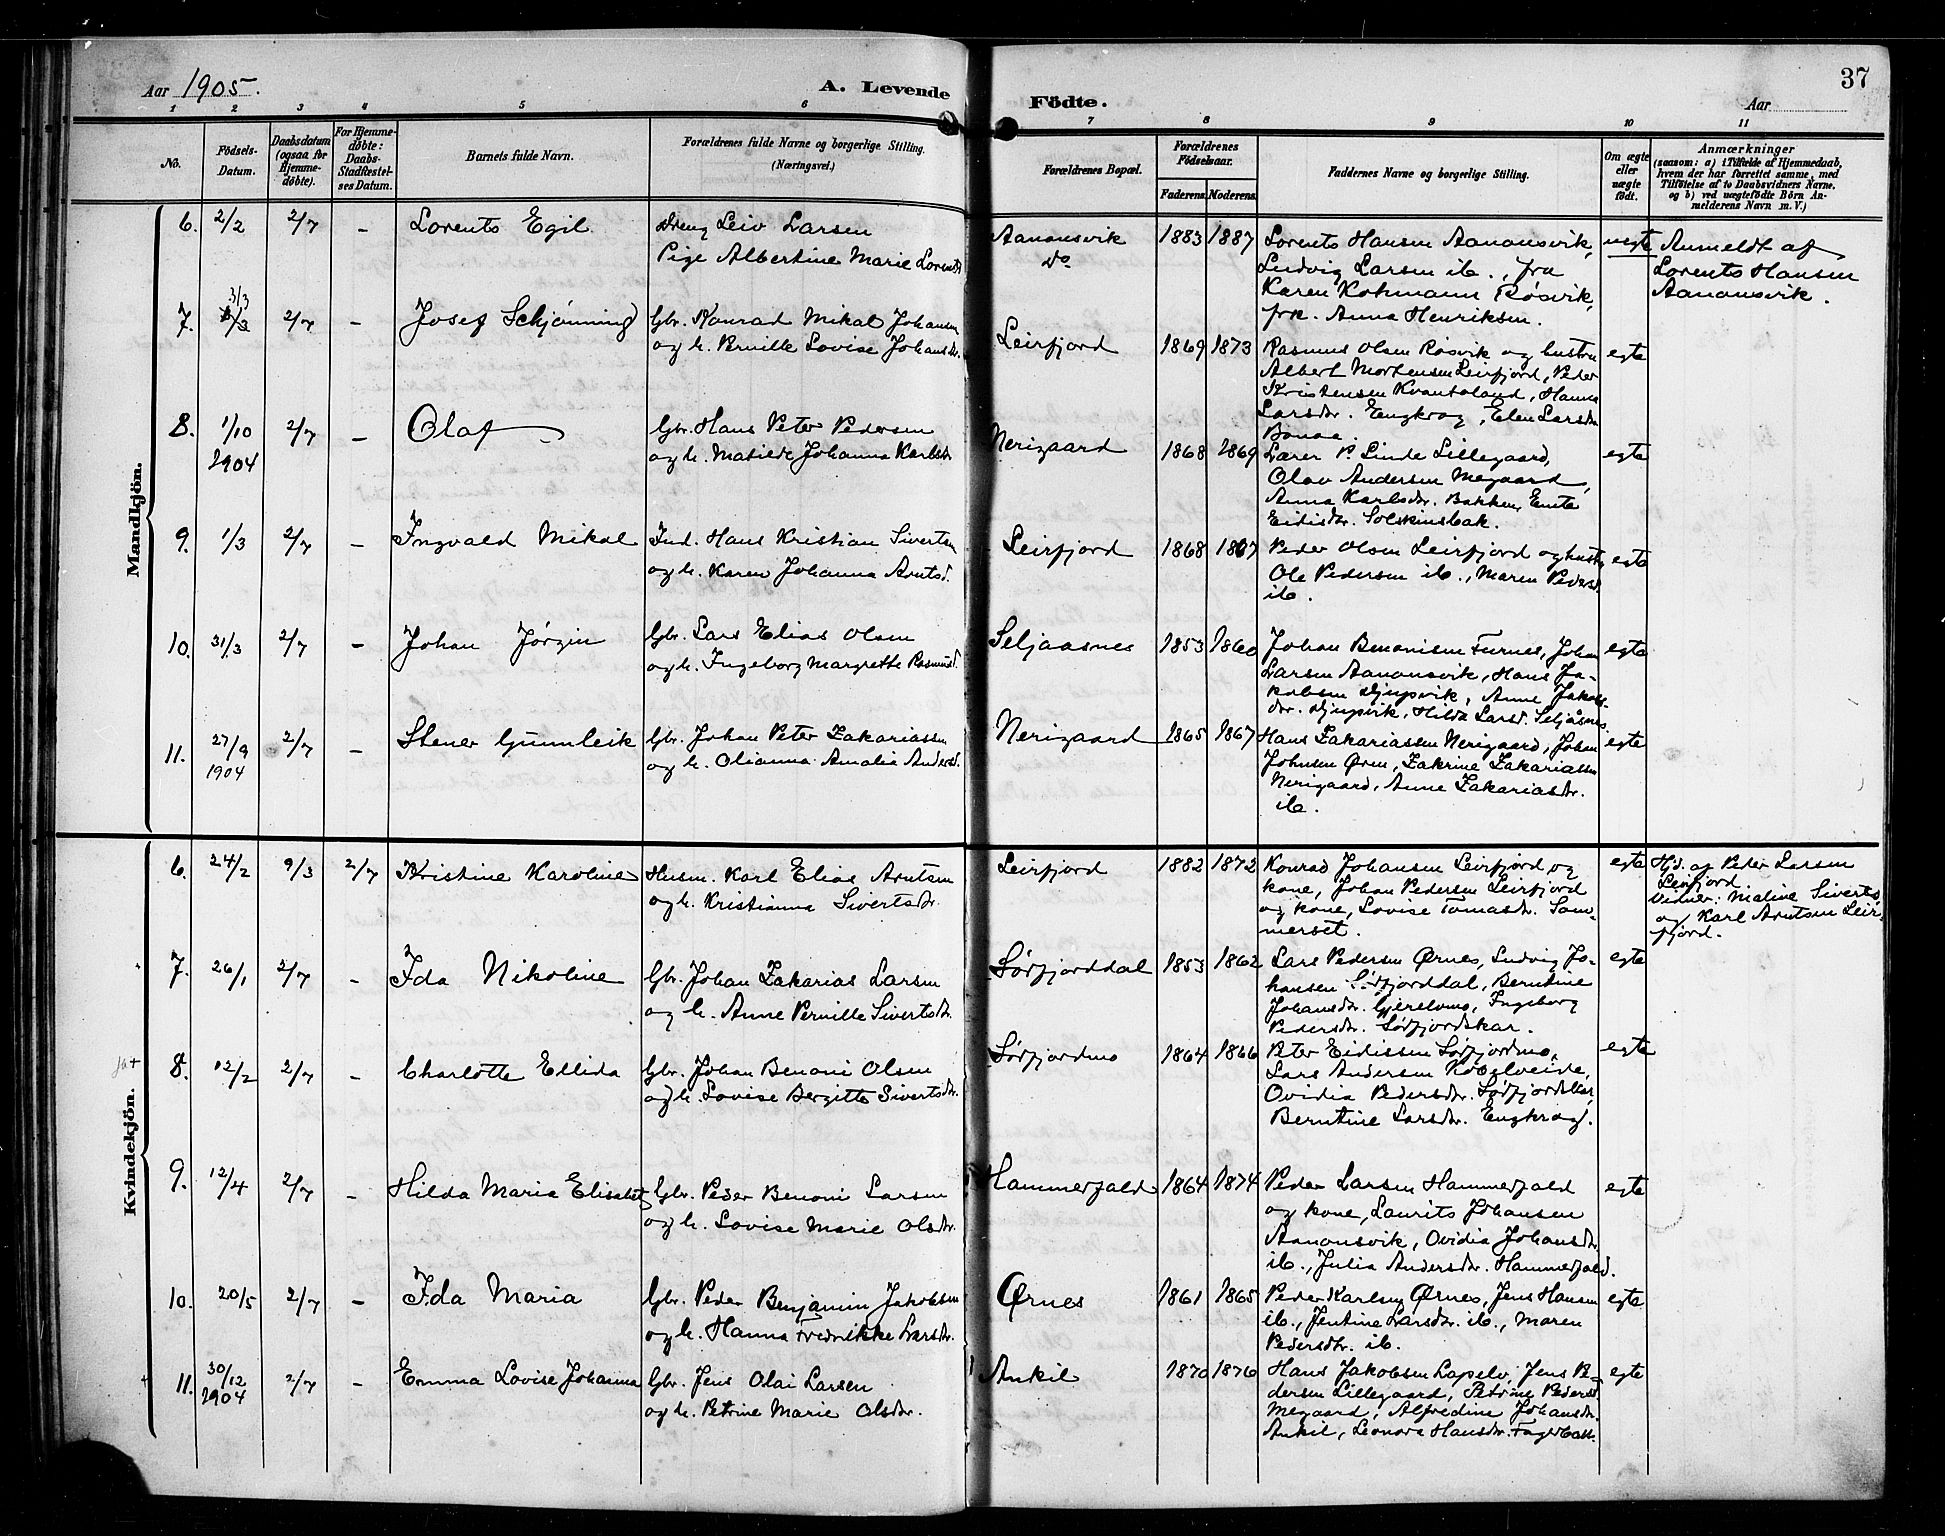 Aar 1905.
A. Levende
Födte.
37
Aar
1 2 3 4 5 6 7 8 9 10 11
No.
Födsels-
Datum.
Daabsdatum
(ogsaa for
Hjemme-
døbte).
For Hjemme-
døbte:
Daabs-
Stadfæstel-
ses Datum.
Barnets fulde Navn.
Forældrenes fulde Navne og borgerlige Stilling.
(Næringsvei.)
Forældrenes Bopæl.
Forældrenes
Födselsaar.
Faderens. Moderens.
Faddernes Navne og borgerlige Stilling.
Om ægte
eller
uægte
født.
Anmærkninger
(saasom: a) i Tilfælde af Hjemmedaab,
hvem der har forrettet samme, med
Tilføielse af to Daabsvidners Navne,
og b) ved uægtefødte Börn An-
melderens Navn m. V.)
Mandkjön.
6. 2/2 2/7 – Lorents Egil Dreng Leiv Larsen
Pige Albertine Marie Lorents
Aanonsvik 1883 1887
do
Lorents Hansen Aanonsvik,
Ludvig Larsen ib., fru
Karen Kohmann Røsvik,
frk. Anna Henriksen.
uegte
Anmeldt af
Lorents Hansen
Aanonsvik.
7. 3/3 2/7 – Josef Schjønning Gbr. Konrad Mikal Johansen
og h. Pernille Lovise Johansdr.
Leirfjord 1869 1873
Rasmus Olsen Røsvik og hustru
Albert Mortensen Leirfjord, Peder
Kristensen Kvantoland, Hanna
Larsdtr. Engkrog, Elen Larsdtr
Bonaa.
egte
8. 1/10 2/7 – Olaf Gbr. Hans Peter Pedersen
1904 og h. Matilde Johanna Karlsdr.
Nerigaard 1868 1869
Lærer P. Linde Lillegaard,
Olav Andersen Megaard,
Anna Karlsdtr. Bakken,
Eidisdtr. Solskinsbak.
egte
9. 1/3 2/7 – Ingvald Mikal Ind. Hans Kristian Sivertsen
og h. Karen Johanna Arntsd.
Leirfjord 1868 1867
Peder Olsen Leirfjord og hustr,
Ole Pedersen ib., Maren Pedersd.
ib.
egte
10. 31/3 2/7 – Johan Jørgin Gbr. Lars Elias Olsen
og h. Ingeborg Margrethe Rasmusd.
Seljaasnes 1853 1860
Johan Benonisen Furnes, Johan
Larsen Aanonsvik, Hans Ja-
kobsen Djupvik, Anne Jakobs-
dtr. Djupvik, Hilda Larsd. Seljåsnes.
egte
11. 27/9 2/7 – Stener Gunnleik Gbr. Johan Peter Zakariassen
1904 og h. Olianna Amalia Andersd.
Nerigaard 1865 1867
Hans Zakariassen Nerigaard, Johan
Johnsen Øren, Zakrine Zakariassen
Nerigaard, Anne Zakariasdtr.
ib.
egte
Kvindekjön.
6. 24/2 9/3 2/7 Kristine Karoline Husm. Karl Elias Arntsen
og h. Kristianna Sivertsdr.
Leirfjord 1882 1872
Konrad Johansen Leirfjord og
kone, Johan Pedersen Leirfjord
og kone, Lovise Tomasdr. Som-
merset.
egte
Hjd. af Peder Larsen
Leirfjord.
Vidner: Maline Siverts
og Karl Arntsen Leir-
fjord.
7. 26/1 2/7 – Ida Nikoline Gbr. Johan Zakarias Larsen
og h. Anne Pernille Sivertsdr.
Sørfjorddal 1853 1862
Lars Pedersen Ørnes, Ludvig Jo-
hansen Sørfjorddal, Berntine
Johansdtr. Gjerelvmo, Ingeborg
Pedersdtr. Sørfjordskar.
egte
8. 12/2 2/7 – Charlotte Ellida Gbr. Johan Benoni Olsen
og h. Lovise Bergitte Sivertsdr.
Sørfjordmo 1864 1866
Peter Eidissen Sørfjordmo,
Lars Andersen Kobbelveide,
Ovidia Pedersdtr. Sørfjordskar,
Berntine Larsdtr. Engkrog.
egte
9. 12/4 2/7 – Hilda Maria Elisabet Gbr. Peder Benoni Larsen
og h. Lovise Marie Olsdtr.
Hammerfald 1864 1874
Peder Larsen Hammerfald
og kone, Laurits Johansen
Aanonsvik, Ovidia Johansdtr
ib., Julia Andersdtr. Hammerfald.
egte
10. 20/5 2/7 – Ida Maria Gbr. Peder Benjamin Jakobsen
og h. Hanna Fredrikke Larsdtr.
Ørnes 1861 1865
Peder Karlsen Ørnes, Jens Hansen
ib., Jentine Larsdtr. ib., Maren
Pedersdtr. ib.
egte
11. 30/12 2/7 – Emma Lovise Johanna Gbr. Jens Olai Larsen
1904 og h. Petrine Marie Olsdtr.
Ankil 1870 1876
Hans Jakobsen Lapelv, Jens Pe-
dersen Lillegaard, Petrine Pedersd.
Megaard, Alfredine Johansdtr.
Ankil, Leonora Hansdtr. Fagerbakk.
egte